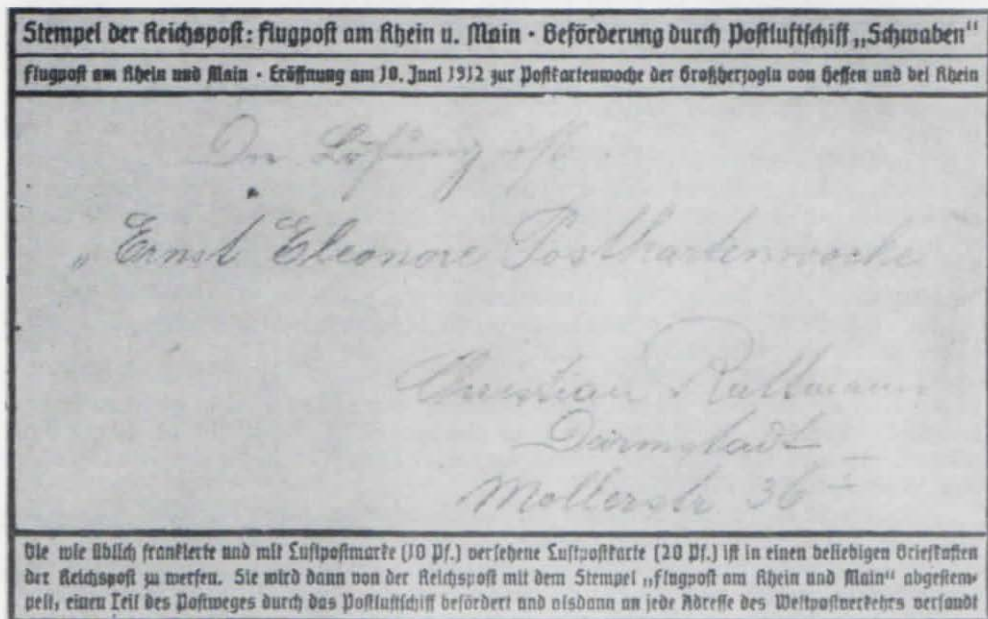 Stempel der Reichspost: Flugpost am Rhein u. Main · Beförderung durch Postluftschiff „Schwaben“
Flugpost am Rhein und Main · Eröffnung am 10. Juni 1912 zur Postkartenwoche der Großherzogin von Hessen und bei Rhein
Die Lösung ist
„Ernst Eleonore Postkartenwoche
Christian
Darmstadt
Mollerstr 36 I
Die wie üblich frankierte und mit Luftpostmarke (10 Pf.) versehene Luftpostkarte (20 Pf.) ist in einen beliebigen Briefkasten
der Reichspost zu werfen. Sie wird dann von der Reichspost mit dem Stempel „Flugpost am Rhein und Main“ abgestem-
pelt, einen Teil des Postweges durch das Postluftschiff befördert und alsdann an jede Adresse des Weltpostverkehrs versandt